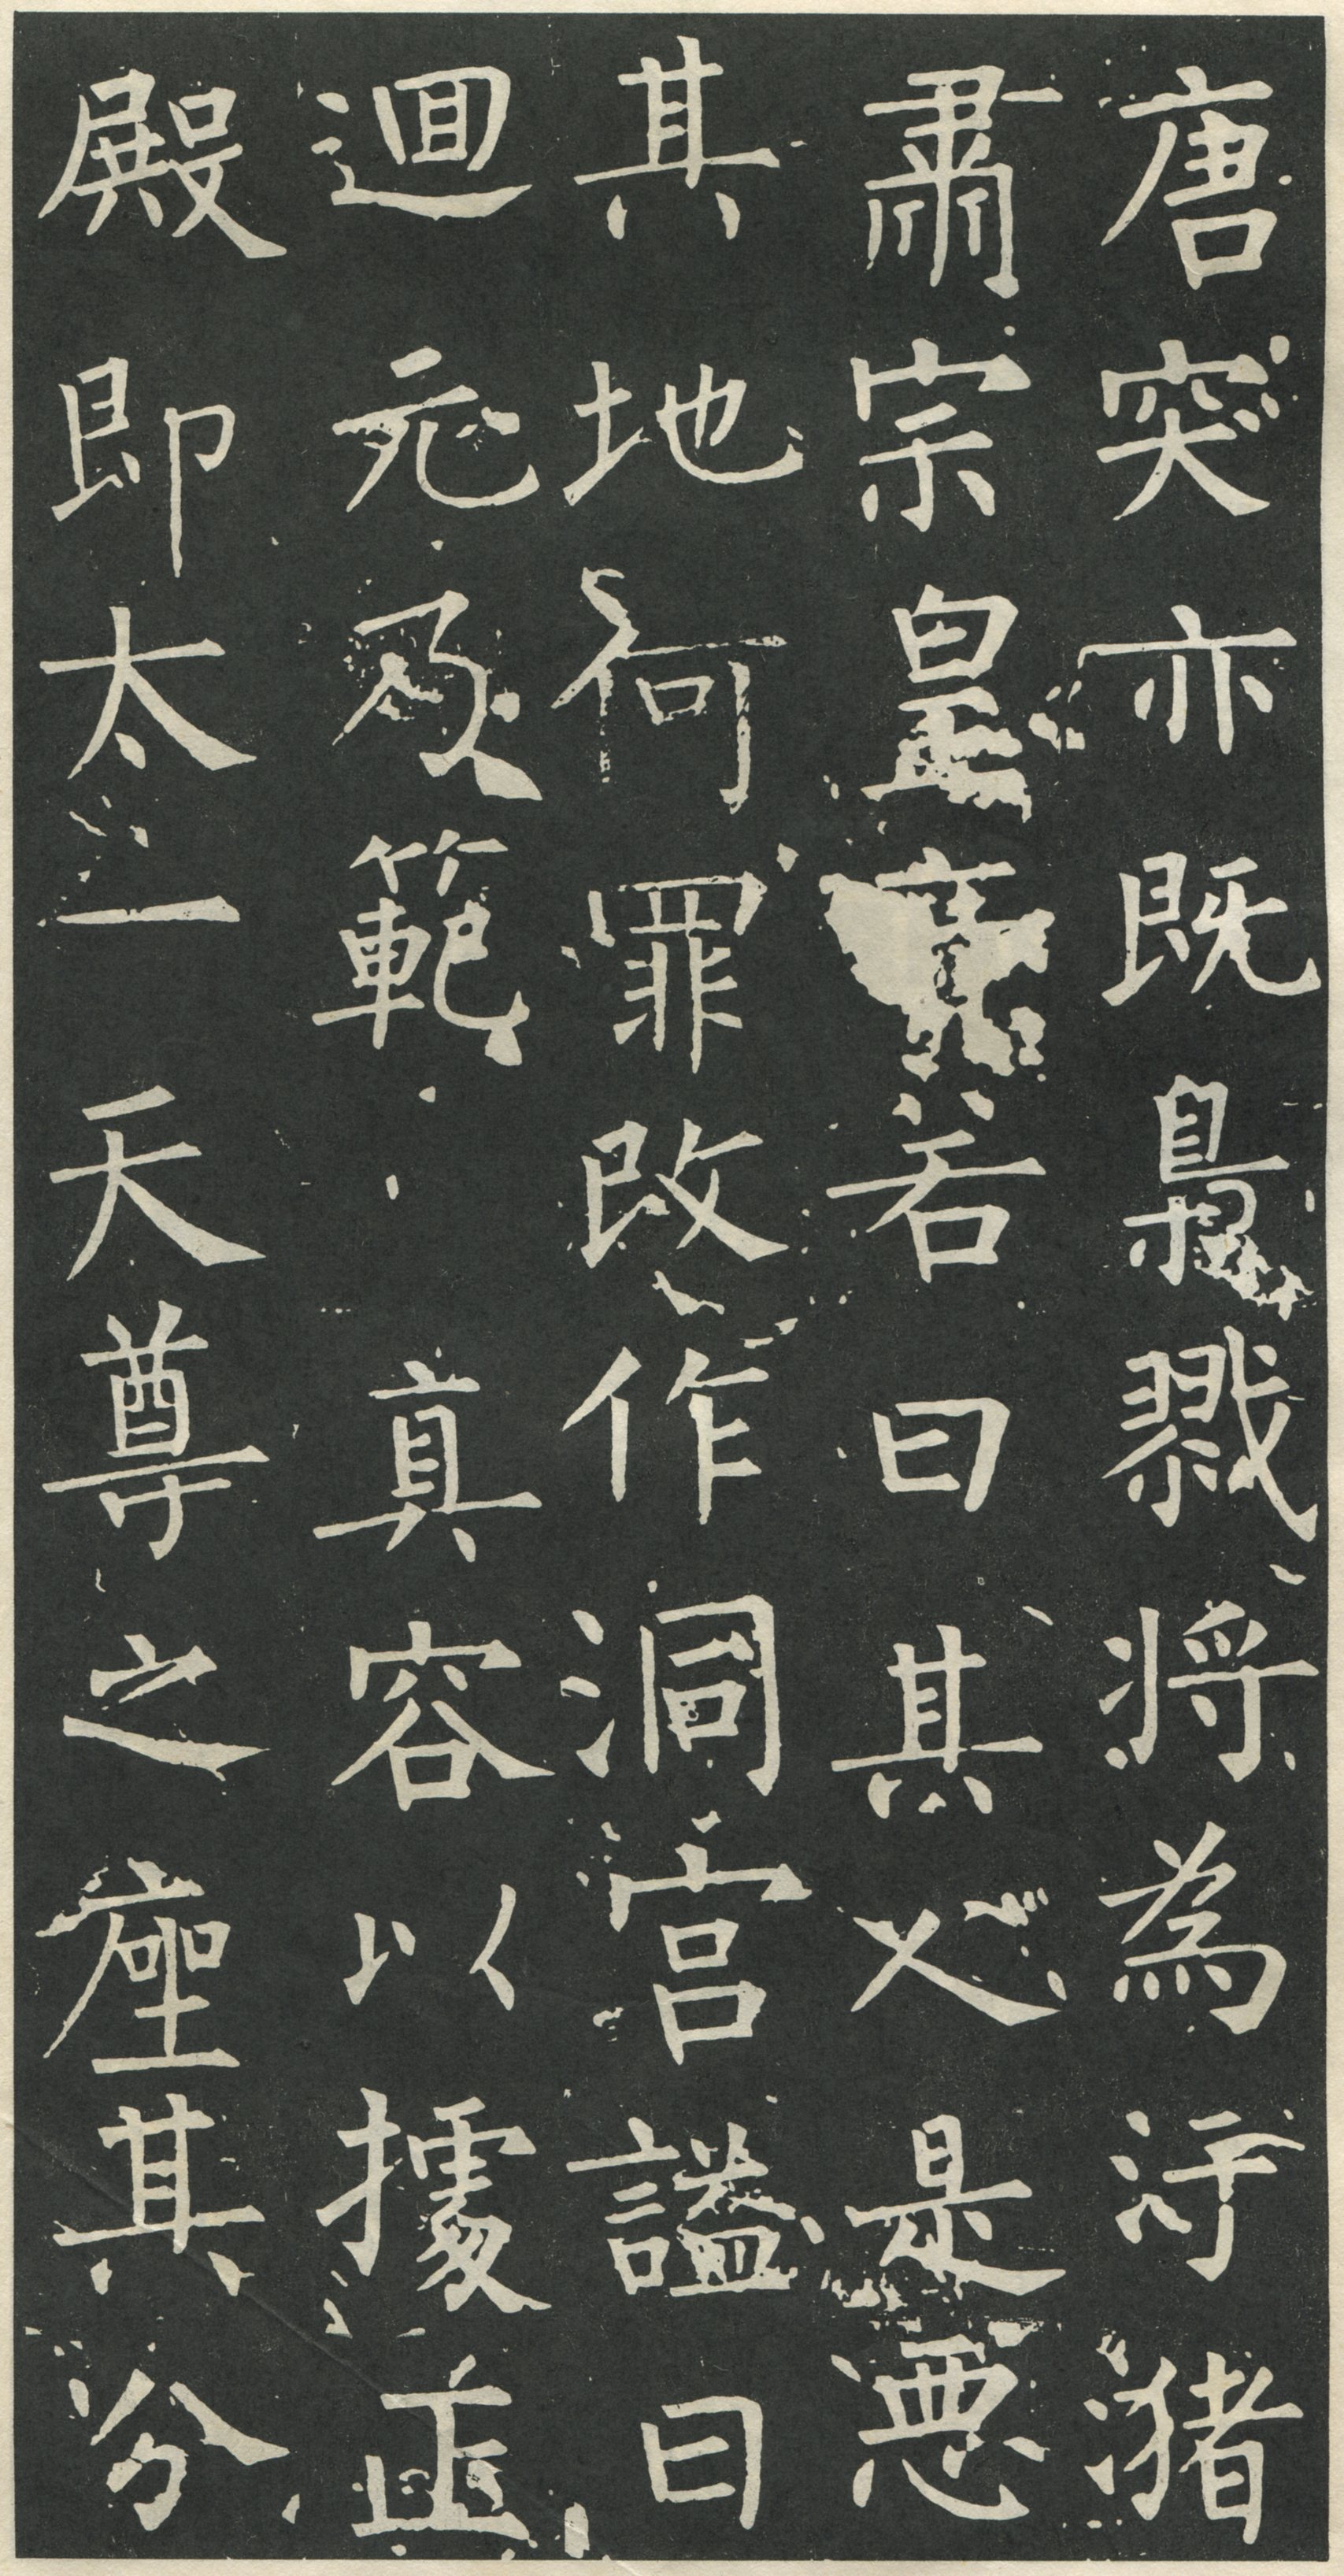 唐突亦既梟戮將為汙潴
肅宗皇帝若曰其人是惡
其地何罪改作洞宮謚曰
迴元乃範 真容以據正
殿即太一天尊之座其分